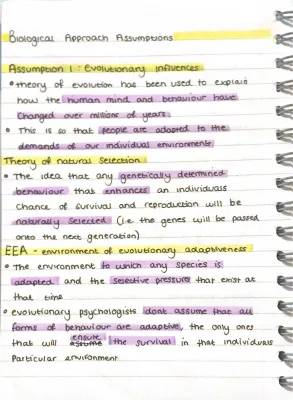 Biological Approach Assumptions
Assumption 1 : Evolutionary Influences
• theory of evolution has been used to explain
how the human mind and behaviour have
changed over millions of years.
• This is so that people are adapted to the
demands of our individual environments
Theory of natural Selection
• The idea that any genetically determined
behaviour that enhances an individuals
Chance of survival and reproduction will be
naturally selected (i.e the genes will be passed
onto the next generation)
EEA - environment of evolutionary adaptiveness
• the environment to which any species is
adapted and the selective pressures that exist at
that time
• evolutionary psychologists dont assume that all
forms of behaviour are adaptive, the only ones
ensure
that will assume the survival in that individuals
Particular environment